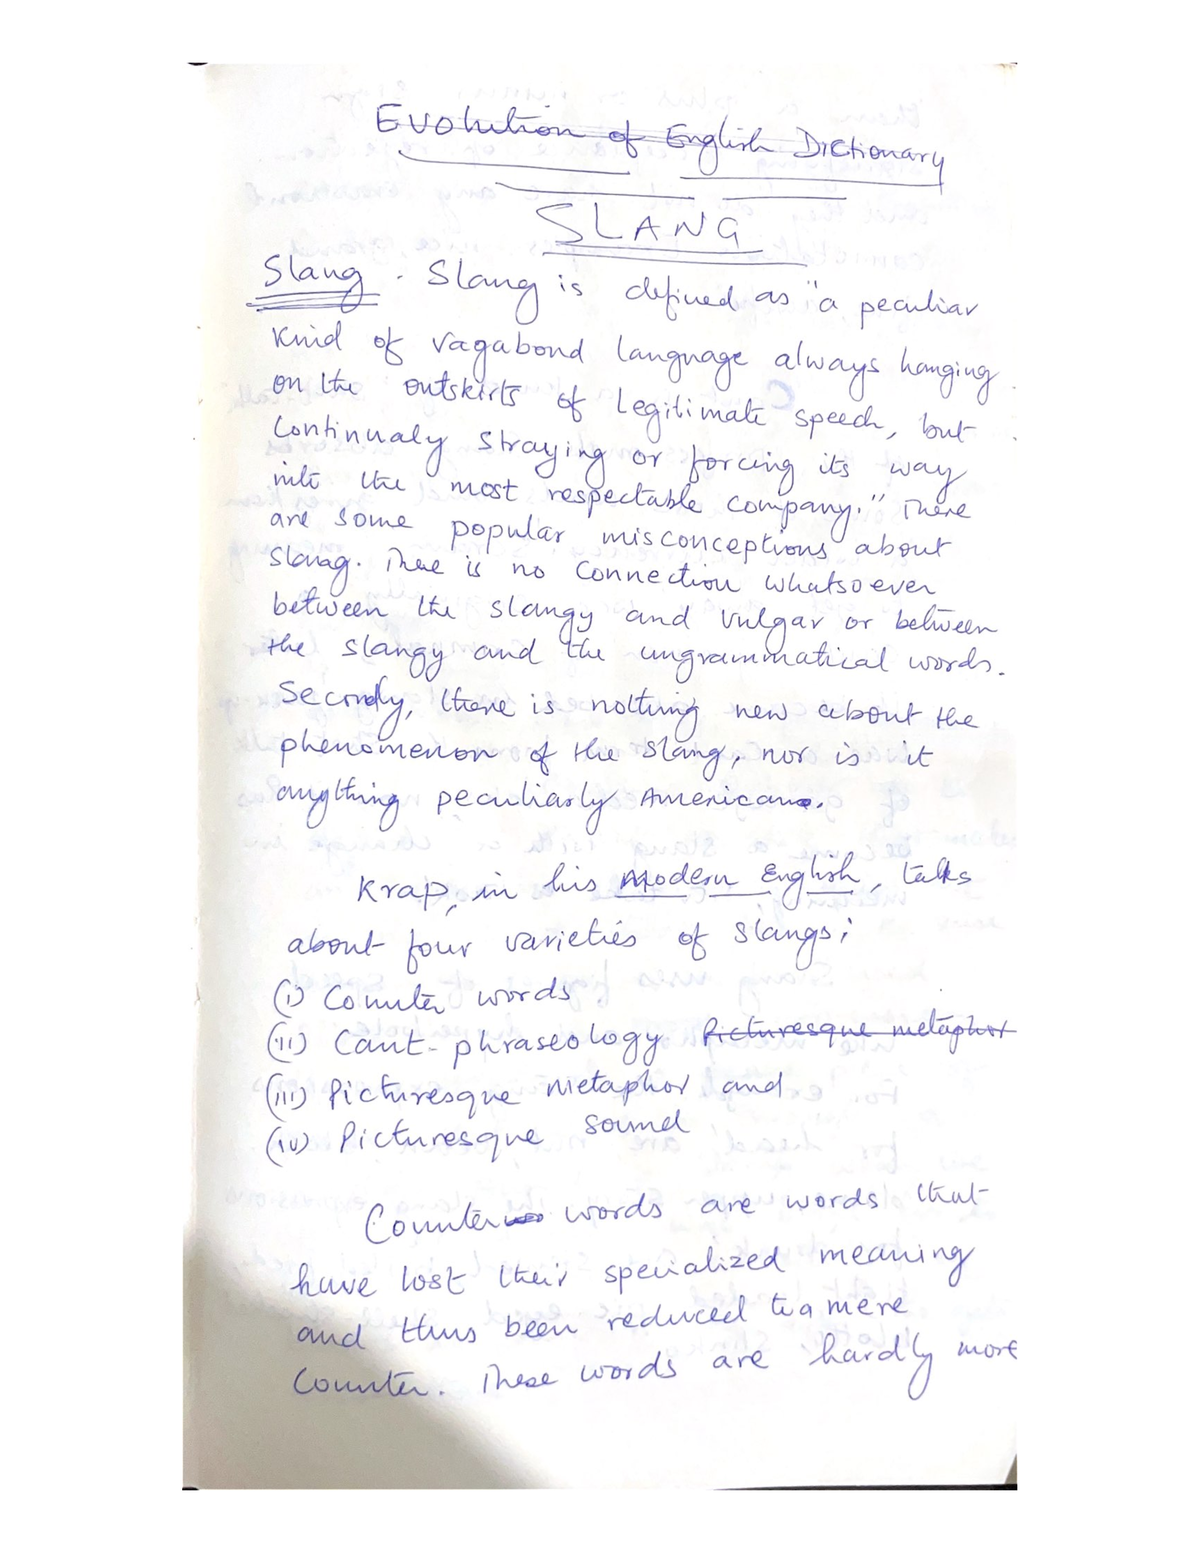 Evolution of English Dictionary
SLANG
Slang - Slang is defined as "a peculiar
kind of vagabond language always hanging
on the outskirts of legitimate speech, but
continualy straying or forcing its way
into the most respectable company." There
are some popular misconceptions about
Slang. There is no connection whatsoever
between the slangy and vulgar or between
the slangy and the ungrammatical words.
Secondly, there is nothing new about the
phenomenon of the slang, nor is it
anything peculiarly American.
Krap, in his Modern English, talks
about four varieties of slangs;
(i) Counter words
(ii) Cant-phraseology Picturesque metaphor
(iii) Picturesque metaphor and
(iv) Picturesque sound
Counter words are words that
have lost their specialized meaning
and thus been reduced to a mere
counter. These words are hardly more